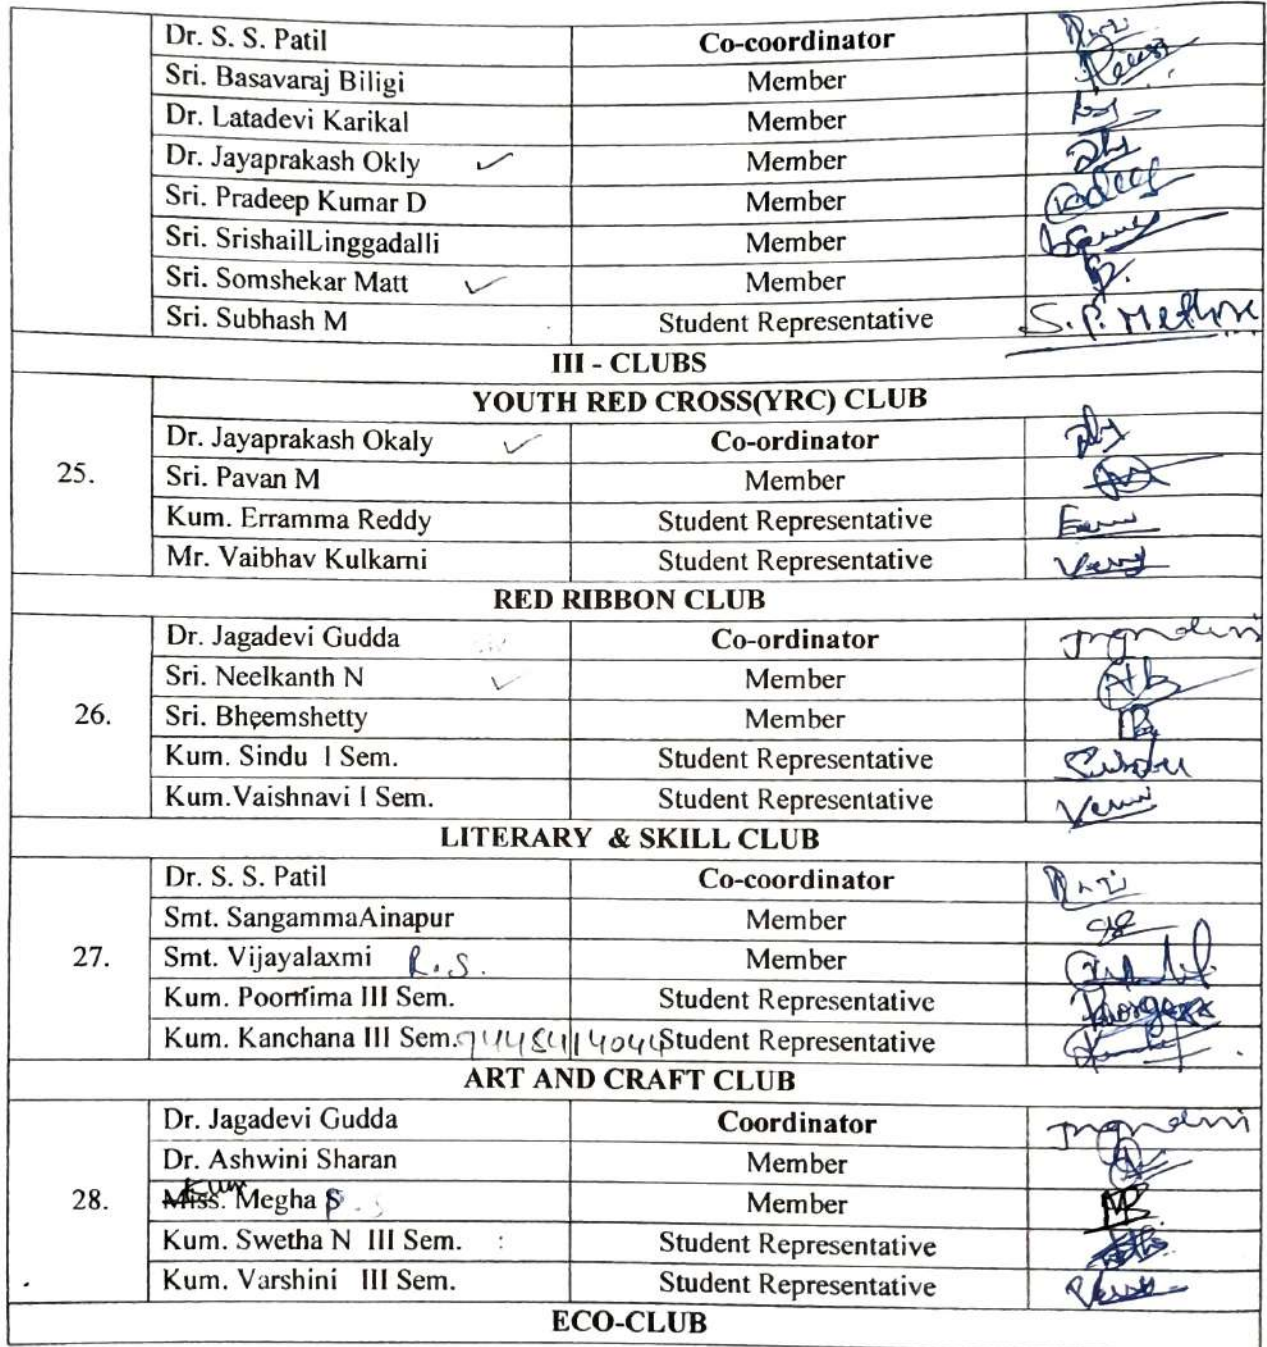 Dr. S. S. Patil Co-coordinator
Sri. Basavaraj Biligi Member
Dr. Latadevi Karikal Member
Dr. Jayaprakash Okly ✓ Member
Sri. Pradeep Kumar D Member
Sri. SrishailLinggadalli Member
Sri. Somshekar Matt ✓ Member
Sri. Subhash M Student Representative
III - CLUBS
YOUTH RED CROSS(YRC) CLUB
Dr. Jayaprakash Okaly ✓ Co-ordinator
25. Sri. Pavan M Member
Kum. Erramma Reddy Student Representative
Mr. Vaibhav Kulkarni Student Representative
RED RIBBON CLUB
Dr. Jagadevi Gudda Co-ordinator
Sri. Neelkanth N ✓ Member
26. Sri. Bheemshetty Member
Kum. Sindu I Sem. Student Representative
Kum.Vaishnavi I Sem. Student Representative
LITERARY & SKILL CLUB
Dr. S. S. Patil Co-coordinator
Smt. SangammaAinapur Member
27. Smt. Vijayalaxmi R.S. Member
Kum. Poornima III Sem. Student Representative
Kum. Kanchana III Sem. Student Representative
ART AND CRAFT CLUB
Dr. Jagadevi Gudda Coordinator
Dr. Ashwini Sharan Member
28. Kum Megha Member
Kum. Swetha N III Sem. : Student Representative
Kum. Varshini III Sem. Student Representative
ECO-CLUB